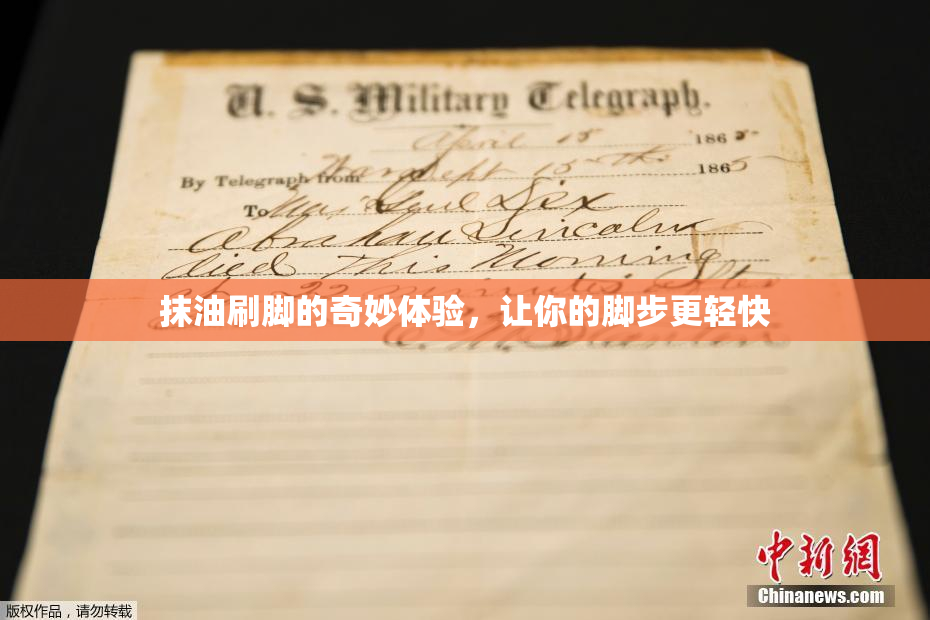 U. S. Military Telegraph.
April 15 1865
By Telegraph from War Dept 15th 1865
To Maj Genl Dix
Abraham Lincoln
died This Morning
at 22 minutes after
抹油刷脚的奇妙体验，让你的脚步更轻快
E. M. Stanton
中新網
Chinanews.com
版权作品，请勿转载